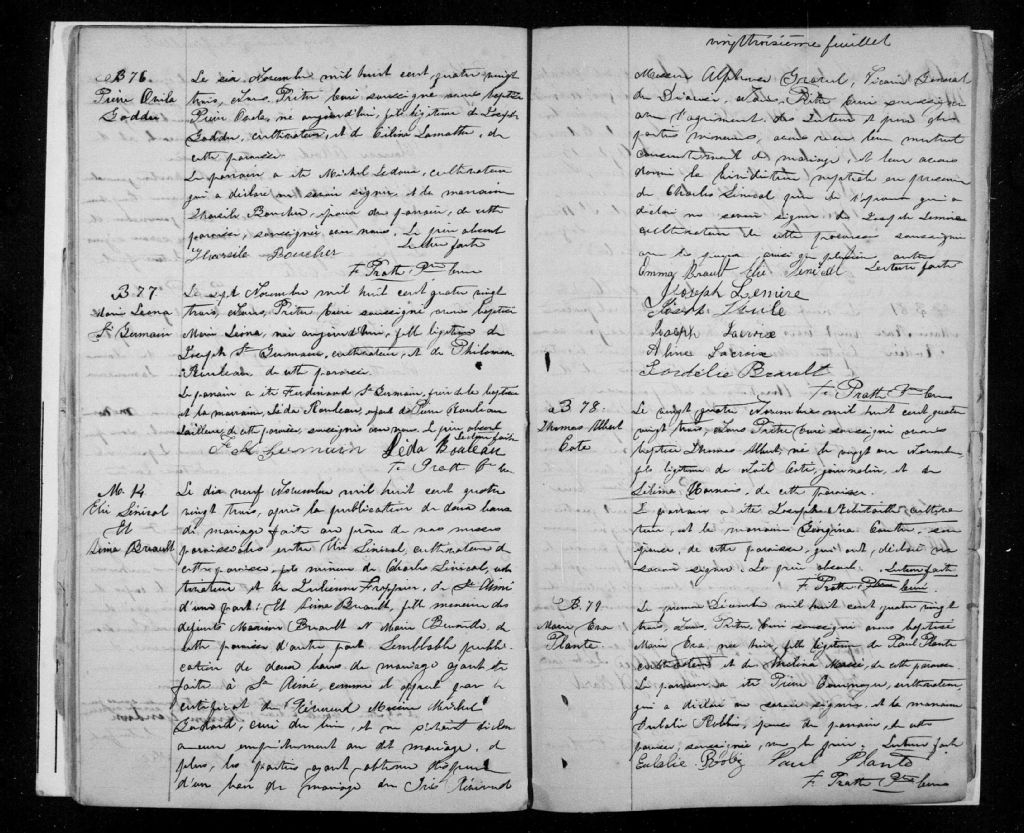 B 76
Pierre Ovila
Goddu
Le six Novembre mil huit cent quatre vingt
trois, Nous Prêtre Curé soussigné avons baptisé
Pierre Ovila, né aujourd'hui, fils légitime de Joseph
Goddu, cultivateur, et de Céline Lamothe, de
cette paroisse.
Le parrain a été Michel Ledoux, cultivateur
qui a déclaré ne savoir signer, et la marraine
Tharsile Boucher, épouse du parrain, de cette
paroisse, soussignée avec nous. Le père absent
Lecture faite
Tharsile Boucher
F. Pratte Ptre Curé
B 77
Marie Leona
St Germain
Le sept Novembre mil huit cent quatre vingt
trois, Nous, Prêtre Curé soussigné, avons baptisé
Marie Leona, née aujourd'hui, fille légitime de
Joseph St Germain, cultivateur, et de Philomène
Rouleau de cette paroisse.
Le parrain a été Ferdinand St Germain, frère de la baptisée
et la marraine, Léda Rouleau, de Pierre Rouleau
tailleur, de cette paroisse, soussignés avec nous. Le père absent
Lecture faite
F St Germain Léda Rouleau
F. Pratte Ptre Curé
M. 14
Elie Sénécal
Et
Brault
Le dix neuf Novembre mil huit cent quatre
vingt trois, après la publication de deux bans
de mariage faite au prône de nos messes
paroissiales entre Elie Sénécal, cultivateur de
cette paroisse, fils mineur de Charles Sénécal, cul-
tivateur et de Julienne de St Aimé
d'une part; Et Brault, fille mineure des
défunts Brault et Marie de
cette paroisse d'autre part. Semblable publi-
cation de deux bans de mariage ayant été
faite à St Aimé, comme il appert par le
certificat du Révérend Messire Michel
Godard, curé du lieu, et ne s'étant découvert
aucun empêchement au dit mariage, de
plus, les parties ayant obtenu dispense
d'un ban de mariage du Très Révérend
vingt troisième feuillet
Messire Alphonse Gravel, Vicaire Général
du Diocèse, Nous, Prêtre Curé soussigné
avec l'agrément des tuteur et père des
parties mineures, avons reçu leur mutuel
consentement de mariage, et leur avons
donné la bénédiction nuptiale en présence
de Charles Sénécal père de l'époux qui a
déclaré ne savoir signer, de Joseph Lemire
cultivateur de cette paroisse soussigné
avec les époux ainsi que plusieurs autres
Emma Brault Elie Sénécal Lecture faite
Joseph Lemire
Joseph
Joseph Lacroix
Aline Lacroix
Cordélie Brault
F. Pratte Ptre Curé
B 78.
Thomas Albert
Cote
Le vingt quatre Novembre mil huit cent quatre
vingt trois, Nous Prêtre Curé soussigné avons
baptisé Thomas Albert, né le vingt un Novembre,
fils légitime de Noël Cote, journalier, et de
Marnais, de cette paroisse.
Le parrain a été Joseph Robitaille cultiva-
teur, et la marraine Georgina
de cette paroisse, qui ont déclaré ne
savoir signer. Le père absent. Lecture faite
F. Pratte Ptre Curé
B. 79
Marie Eva
Plante
Le premier Décembre mil huit cent quatre vingt
trois, Nous Prêtre Curé soussigné avons baptisé
Marie Eva, née hier, fille légitime de Paul Plante
cultivateur et de Melina Massé, de cette paroisse
Le parrain a été Pierre cultivateur,
qui a déclaré ne savoir signer, et la marraine
Eulalie Robby, épouse du parrain, de cette
paroisse, soussignée, avec le père. Lecture faite
Eulalie Robby Paul Plante
F. Pratte Ptre Curé